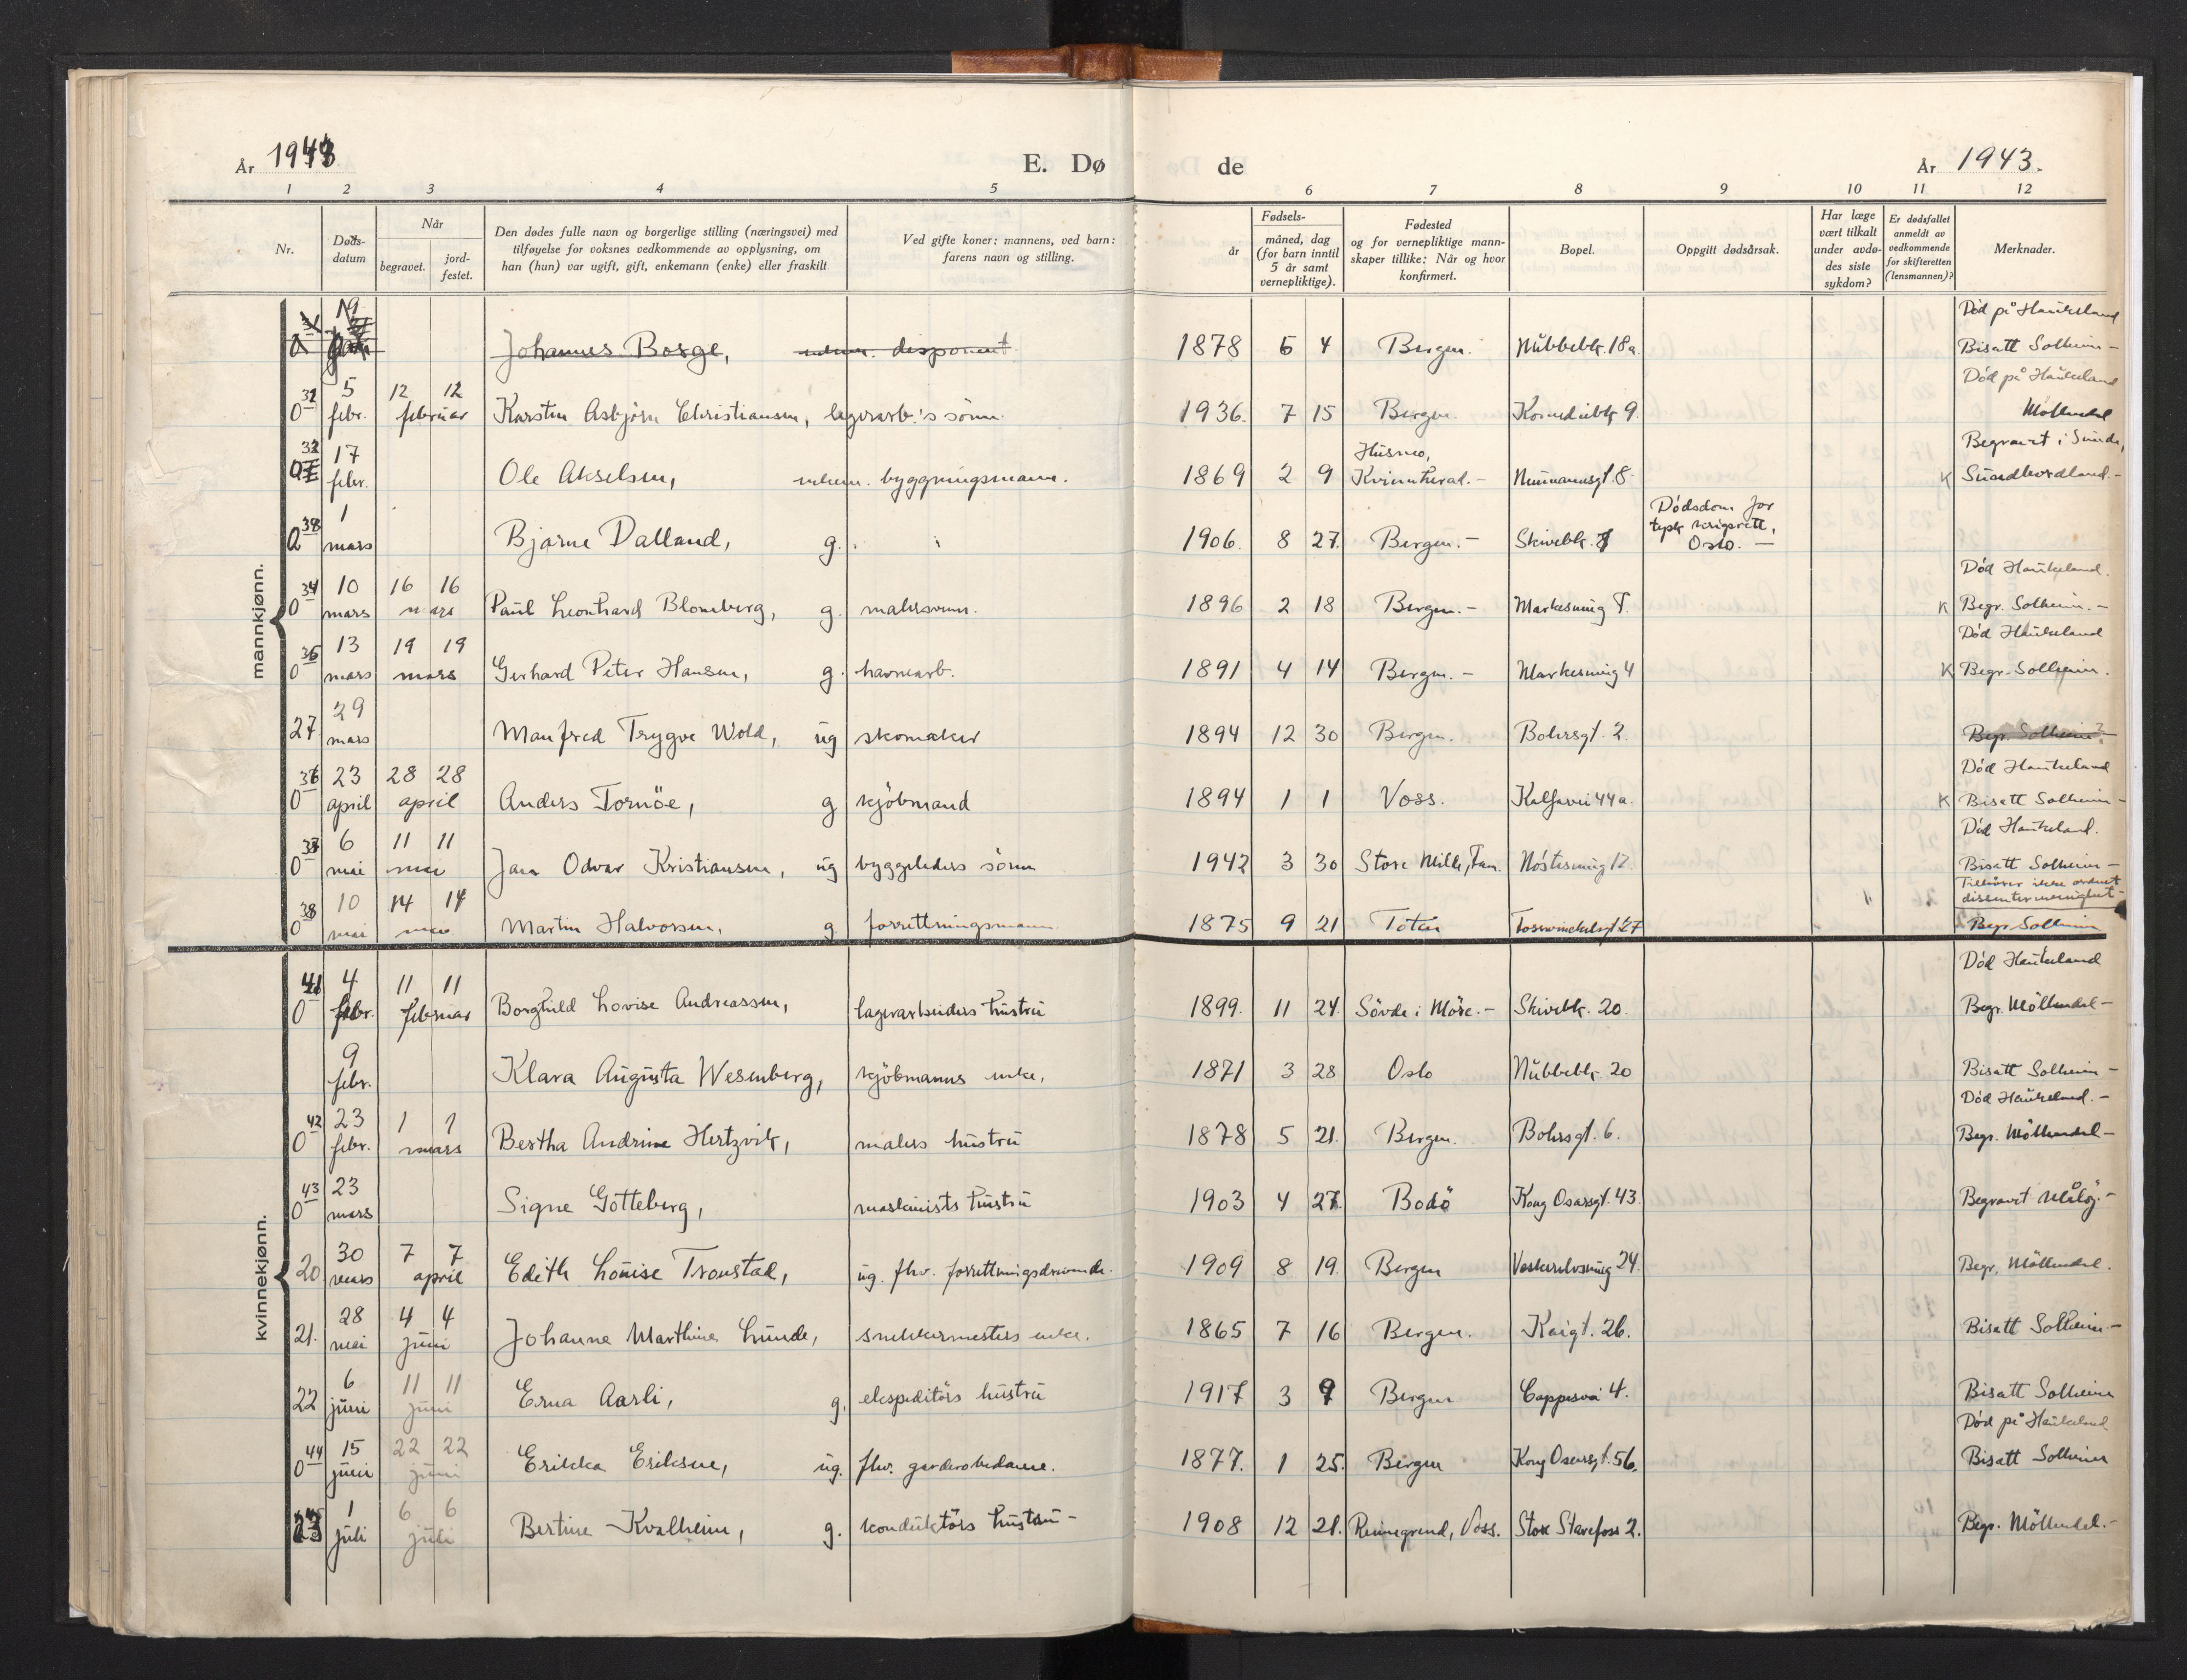 År 1943
E. Dø
de
År 1943.
1 2 3 4 5 6 7 8 9 10 11 12
Nr.
Døds-
datum
Når
begravet.
jord-
festet.
Den dødes fulle navn og borgerlige stilling (næringsvei) med
tilføyelse for voksnes vedkommende av opplysning, om
han (hun) var ugift, gift, enkemann (enke) eller fraskilt
Ved gifte koner: mannens, ved barn:
farens navn og stilling.
Fødsels-
år
måned, dag
(for barn inntil
5 år samt
vernepliktige).
Fødested
og for vernepliktige mann-
skaper tillike: Når og hvor
konfirmert.
Bopel.
Oppgitt dødsårsak.
Har læge
vært tilkalt
under avdø-
des siste
sykdom?
Er dødsfallet
anmeldt av
vedkommende
for skifteretten
(lensmannen)?
Merknader.
mannkjønn.
Død på Haukeland
Johannes Borge, disponent 1878 6 4 Bergen. Nubbebk. 18a. Bisatt Solheim -
Død på Haukeland
0 5 febr. 12 12 februar Karsten Asbjørn Christiansen, lagerarb.'s sønn. 1936. 7 15 Bergen. Komediebk 9. Møllendal
Begravet i Sunde,
32 17 febr. Ole Akselsen, enkem. byggningsmann. 1869 2 9 Husnes, Kvinnherad. - Neumannsgt. 8 K Sundhordland. -
1 mars Bjarne Dalland, g. 1906. 8 27. Bergen. - Skivebk. Dødsdom for tysk krigsrett, Oslo. -
Død Haukeland.
0 34 10 mars 16 16 mars Paul Leonhard Blomberg, g. malersvenn. 1896 2 18 Bergen. - Markesmug 7. K Begr. Solheim. -
Død Haukeland
0 35 13 mars 19 19 mars Gerhard Peter Hansen, g. havnearb. 1891 4 14 Bergen. - Markesmug 4 K Begr. Solheim.
27 29 mars Manfred Trygve Wold, ug skomaker 1894 12 30 Bergen. Bohrsgt. 2. Begr. Solheim?
Død Haukeland
0 36 23 april 28 28 april Anders Tornöe, g kjöbmand 1894 1 1 Voss. Kalfarvei 44a. K Bisatt Solheim -
Død Haukeland.
0 6 mai 11 11 mai Jan Odvar Kristiansen, ug byggeleders sönn 1942 3 30 Store Milde, Fan. Nöstesmug 12. Bisatt Solheim -
Tilhører ikke ordnet
dissentermenighet -
0 38 10 mai 14 14 mai Martin Halvorsen, g forrettningsmann 1875 9 21 Toten 27 Begr Solheim
kvinnekjønn.
Død Haukeland
0 41 4 febr. 11 11 februar Borghild Lovise Andreassen, lagerarbeiders hustru 1899. 11 24. Sövde i Möre. - Skivebk. 20. Begr. Möllendal -
9 febr. Klara Augusta Wesenberg, kjöbmanns enke. 1871 3 28 Oslo Nubbebk. 20 Bisatt Solheim -
Død Haukeland. -
0 42 23 febr. 1 1 mars Bertha Andrine Hertzvik, malers hustru 1878 5 21. Bergen. Bohrsgt. 6. Begr. Möllendal -
0 43 23 mars Signe Götteberg, maskinists hustru 1903 4 27. Bodö Kong Oscarsgt. 43. Begravet Målöy. -
20 30 mars 7 7 april Edith Louise Tronstad, ug. fhv. forrettningsdrivende. 1909 8 19. Bergen 24. Begr. Möllendal.
21. 28 mai 4 4 juni Johanne Marthine Lunde, snekkermesters enke. 1865 7 16 Bergen. Kaigt. 26. Bisatt Solheim -
22 6 juni 11 11 juni Erna Aarli, g. ekspeditörs hustru 1917 3 9 Bergen Cappesvei 4. Bisatt Solheim
Død på Haukeland
0 44 15 juni 22 22 juni Erikka Eriksen, ug. fhv. garderobedame. 1877. 1 25. Bergen Kong Oscarsgt. 56. Bisatt Solheim
1 juli 6 6 juli Bertine Kvalheim, g. konduktörs hustru - 1908 12 21. Rennegrend, Voss. Store Starefoss 2. Begr. Möllendal. -